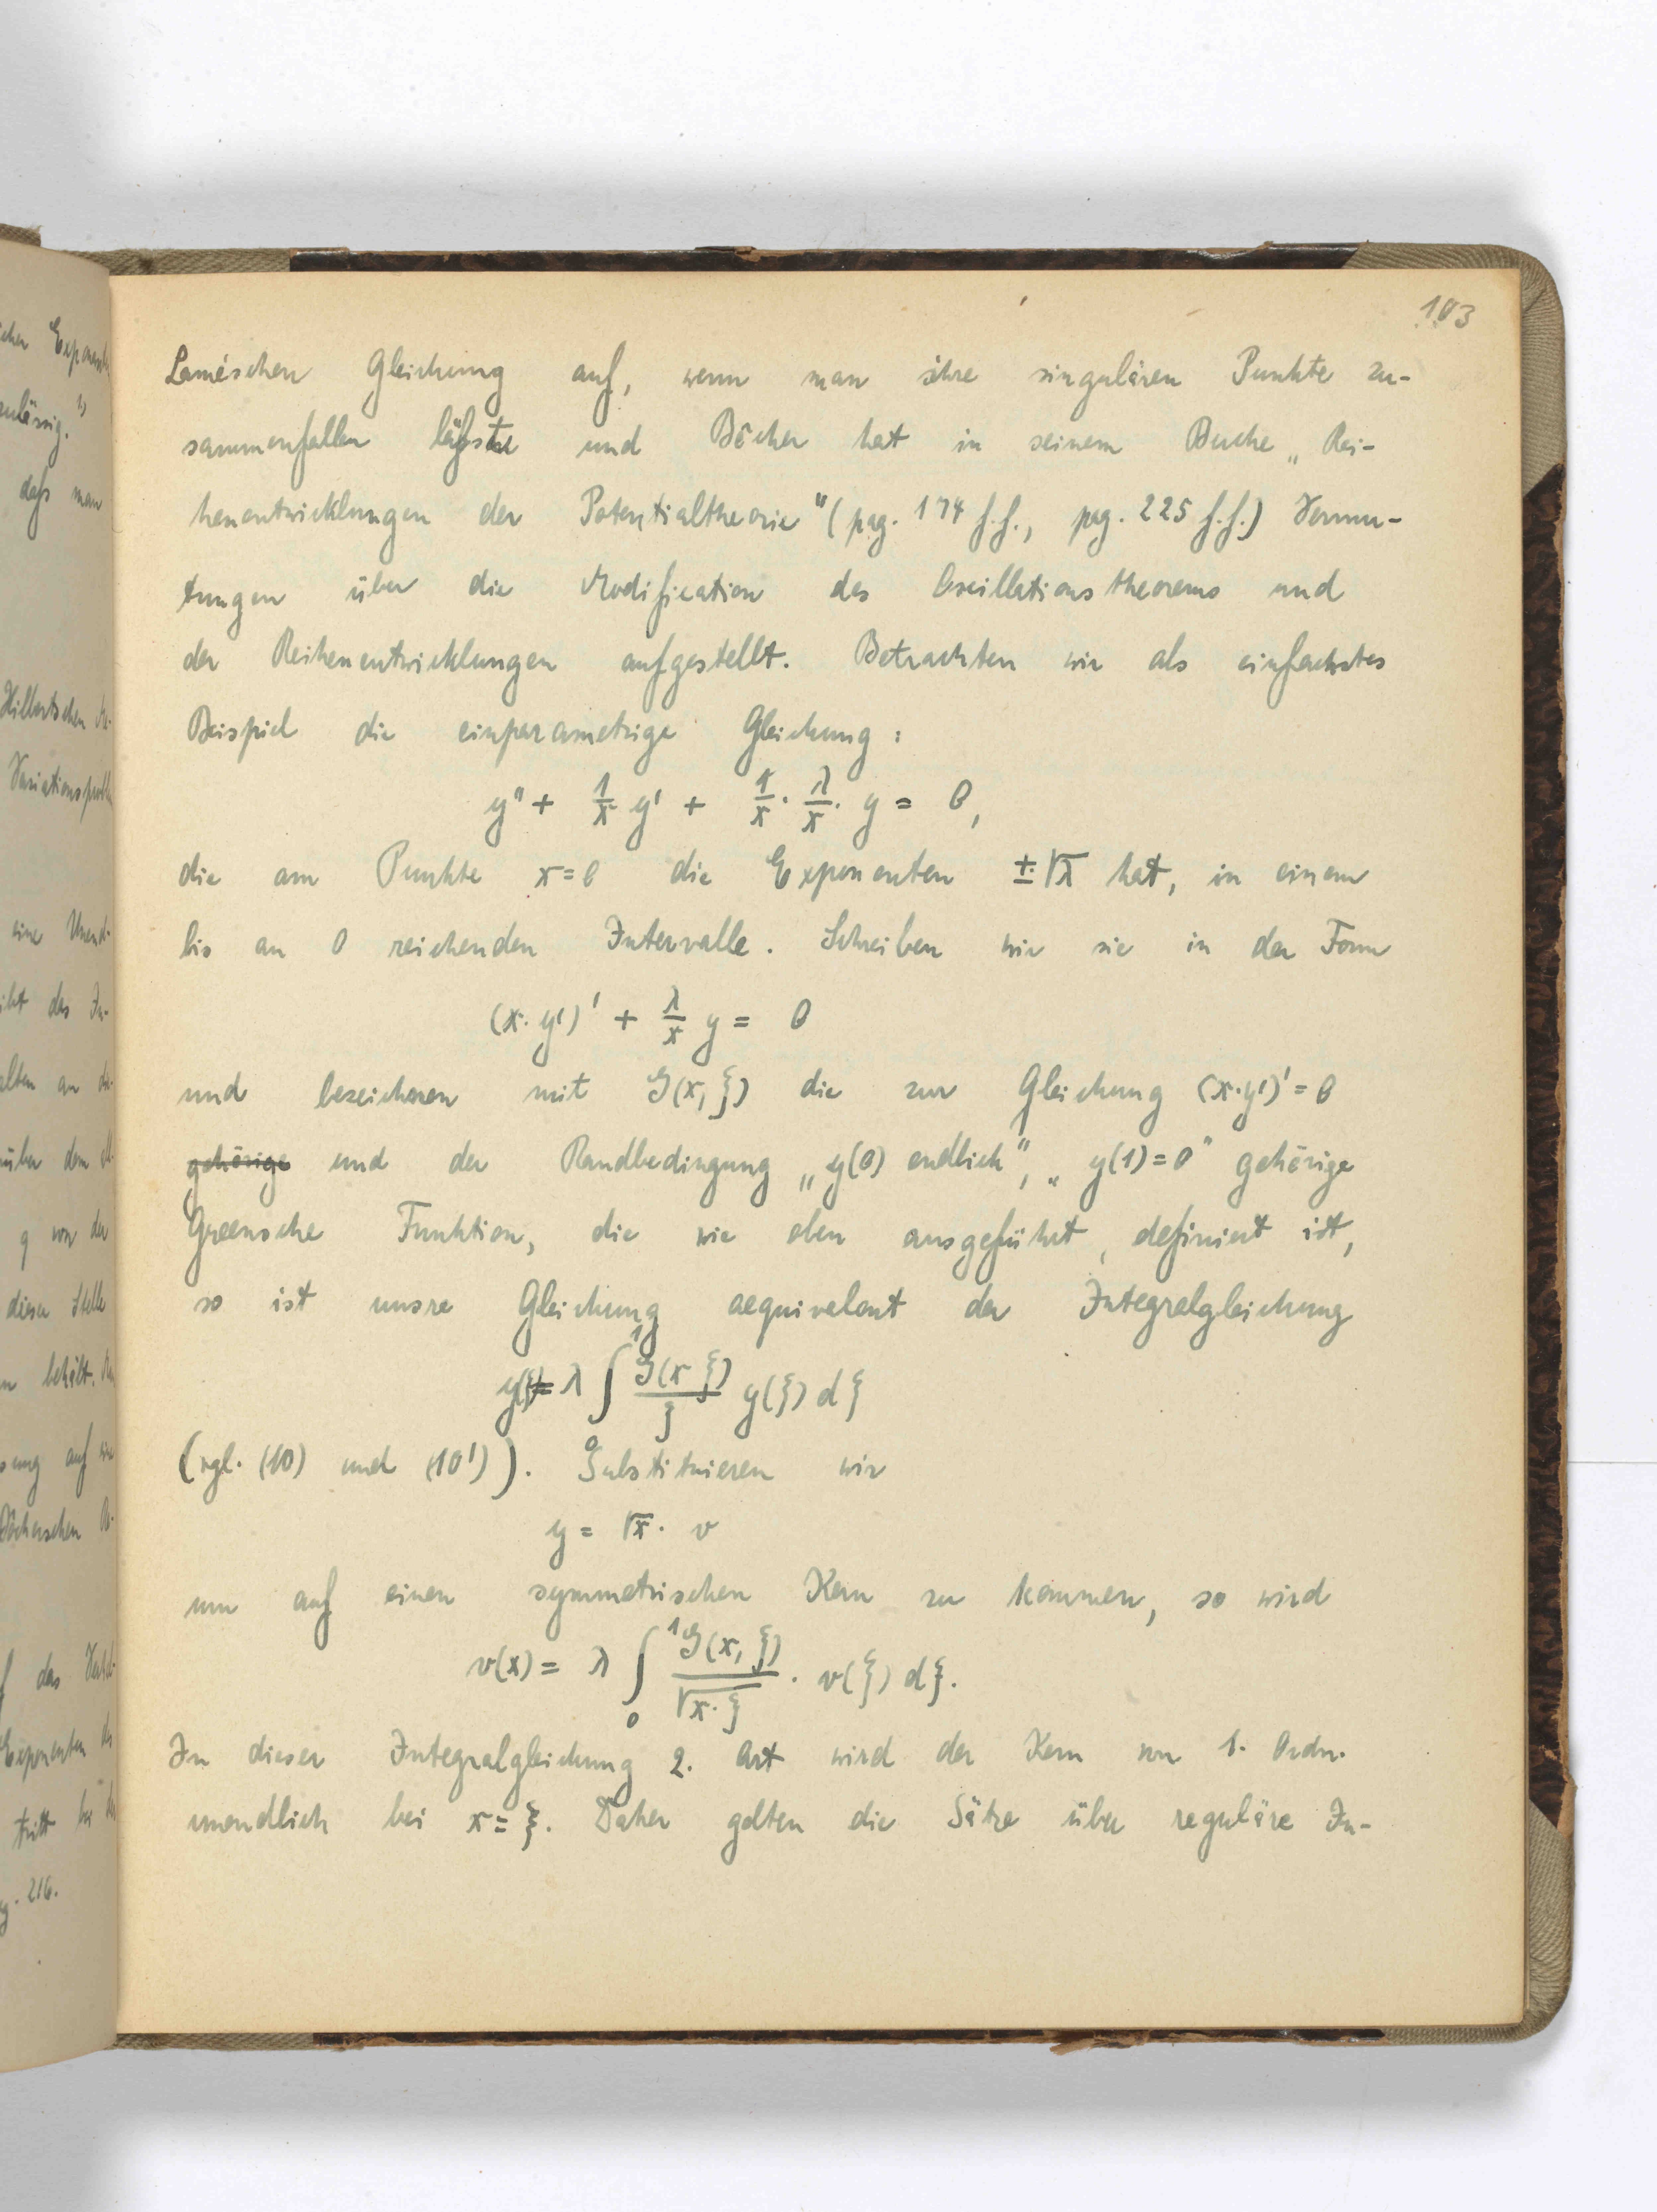 103
Laméschen Gleichung auf, wenn man ihre singulären Punkte zu-
sammenfallen läßt und Bôcher hat in seinem Buche „Rei-
henentwicklungen der Potentialtheorie" (pag. 174 f.f., pag. 225 f.f.) Vermu-
tungen über die Modification des Oscillationstheorems und
der Reihenentwicklungen aufgestellt. Betrachten wir als einfachstes
Beispiel die einparametrige Gleichung:
y'' + 1/x y' + 1/x · λ/x · y = 0,
die am Punkte x=0 die Exponenten ±√λ hat, in einem
bis an 0 reichenden Intervalle. Schreiben wir sie in der Form
(x·y')' + λ/x y = 0
und bezeichnen mit G(x,ξ) die zur Gleichung (x·y')' = 0
gehörige und der Randbedingung „y(0) endlich", „y(1)=0" gehörige
Greensche Funktion, die wie oben ausgeführt, definiert ist,
so ist unsre Gleichung aequivalent der Integralgleichung
y = λ ∫₀¹ G(x ξ)/ξ y(ξ) dξ
(vgl. (10) und (10')). Substituieren wir
y = √x · v
um auf einen symmetrischen Kern zu kommen, so wird
v(x) = λ ∫₀¹ G(x,ξ)/√x·ξ · v(ξ) dξ.
In dieser Integralgleichung 2. Art wird der Kern von 1. Ordn.
unendlich bei x=ξ. Daher gelten die Sätze über reguläre In-